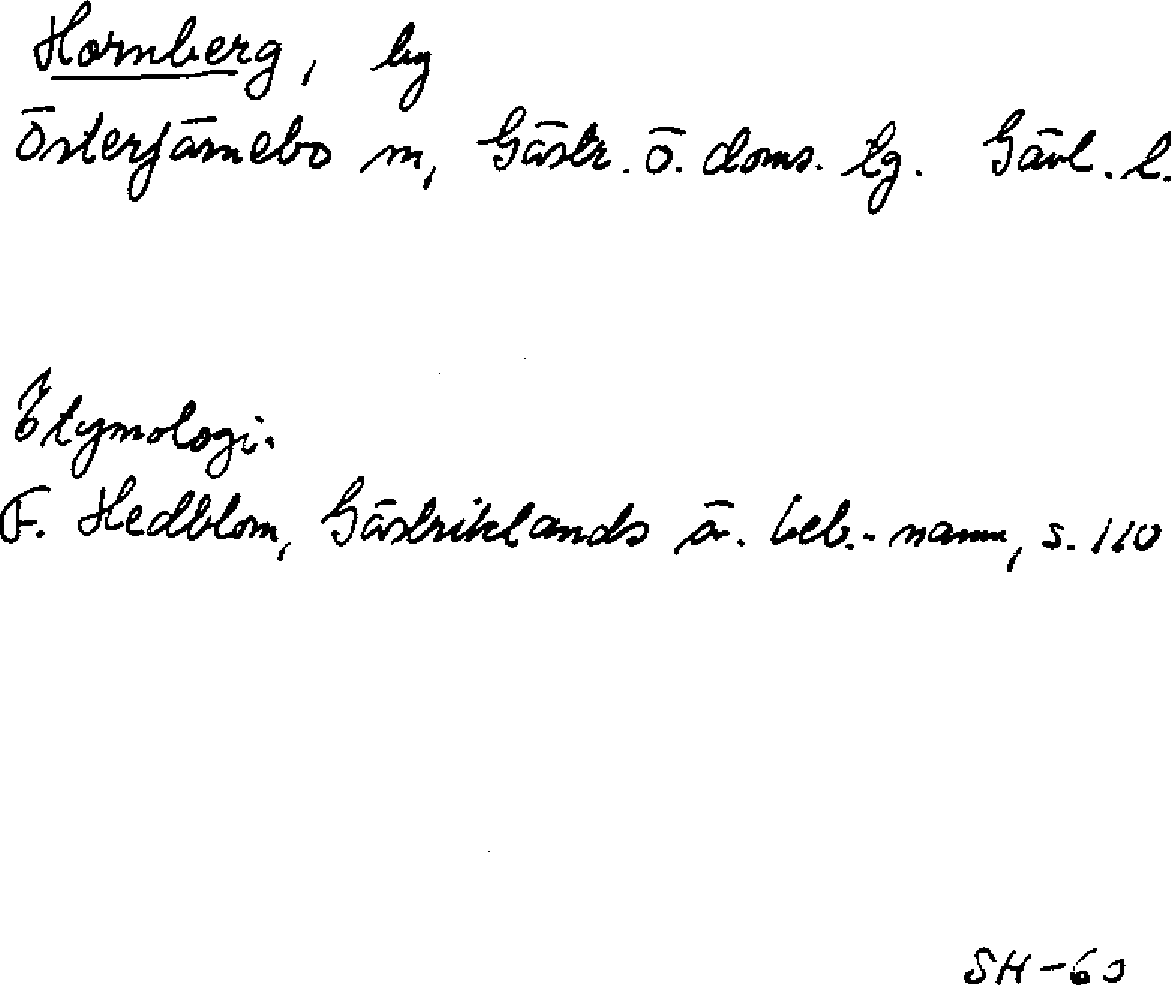 Hornberg, by
Österfärnebo sn, Gästr. ö. doms. tg. Gävl. l.
Etymologi.
F. Hedblom, Gästriklands ä. beb.-namn, s. 110
SH-60